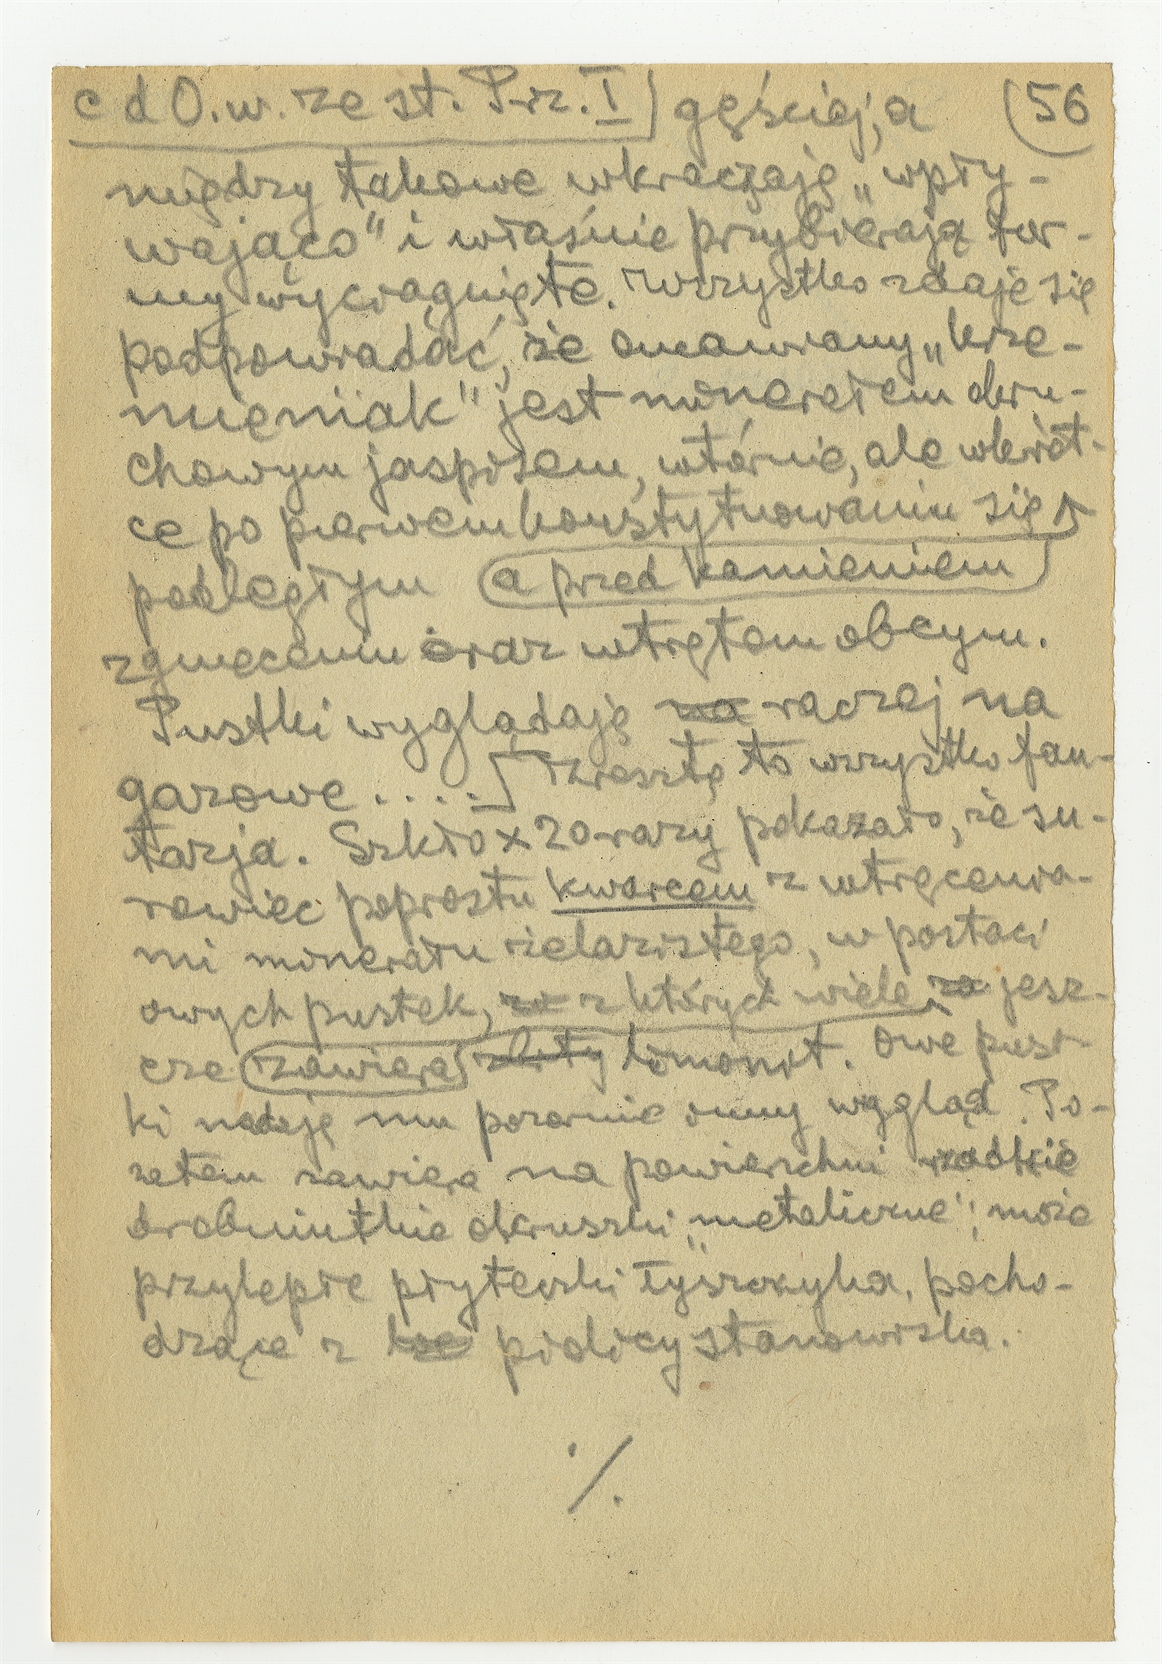 c d O. w. ze st. Prz. I gęściej, a (56
między takowe wkraczają „wpły-
wająco" i właśnie przybierają for-
my wyciągnięte. Wszystko zdaje się
podpowiadać, że omawiany „krze-
mieniak" jest minerałem okru-
chowym jaspisem, wtórnie, ale wkrót-
ce po pierwem konstytuowaniu się
podległym a przed kamieniem
zgnieceniu oraz wtrętom obcym.
Pustki wyglądają na raczej na
gazowe.... Zresztą to wszystko fan-
tazja. Szkło x 20 razy pokazało, że su-
rowiec poprostu kwarcem z wtrącenia-
mi minerału żelazistego, w postaci
owych pustek, z których wiele jesz-
cze zawiera złoty limonit. Owe pust-
ki nadają mu pozornie inny wygląd. Po-
zatem zawiera na powierzchni rzadkie
drobniutkie okruszki „metaliczne"; może
przylepłe płyteczki łyszczyka, pocho-
dzące z okolicy stanowiska.
·/.